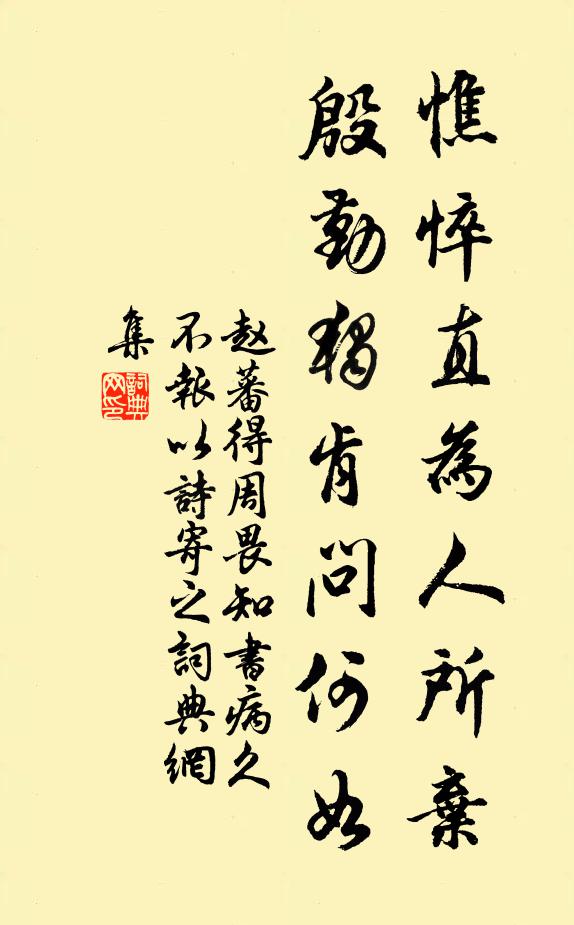 憔悴直為人所棄
殷勤獨肯問何如
赵蕃得周畏知書病久
不報以詩寄之詞典網
集
詞典
网印